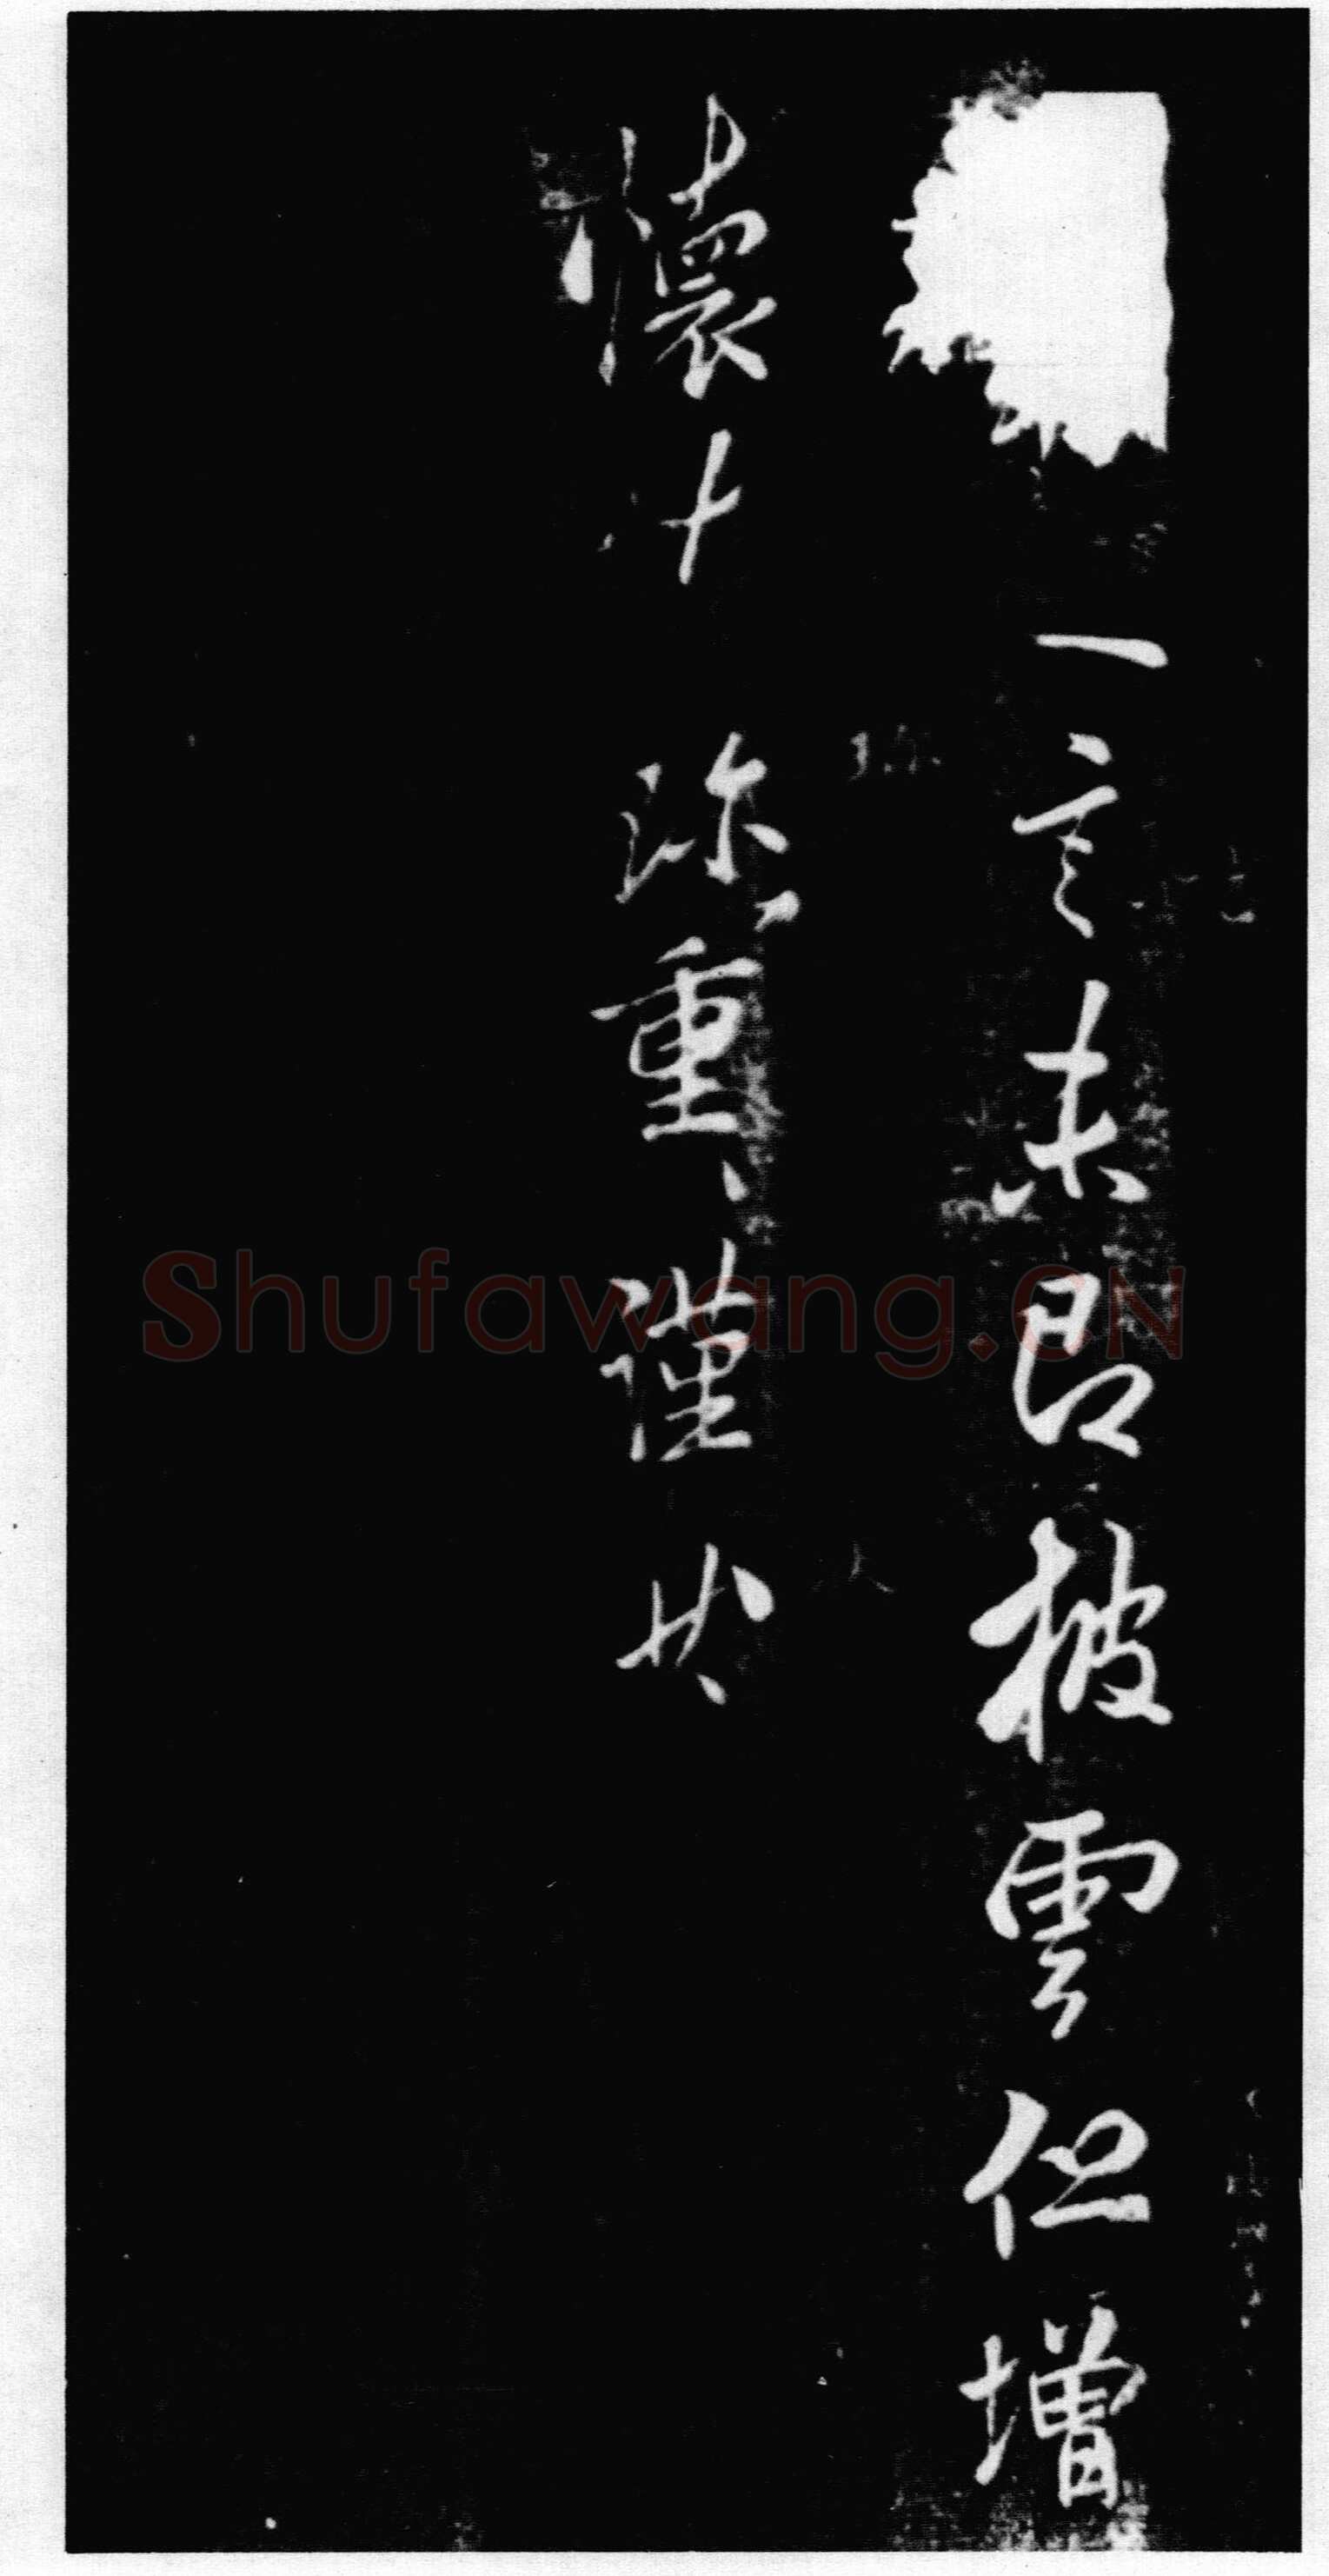 一言未即披雲但增
懷汁珎重、謹
Shufawang.CN